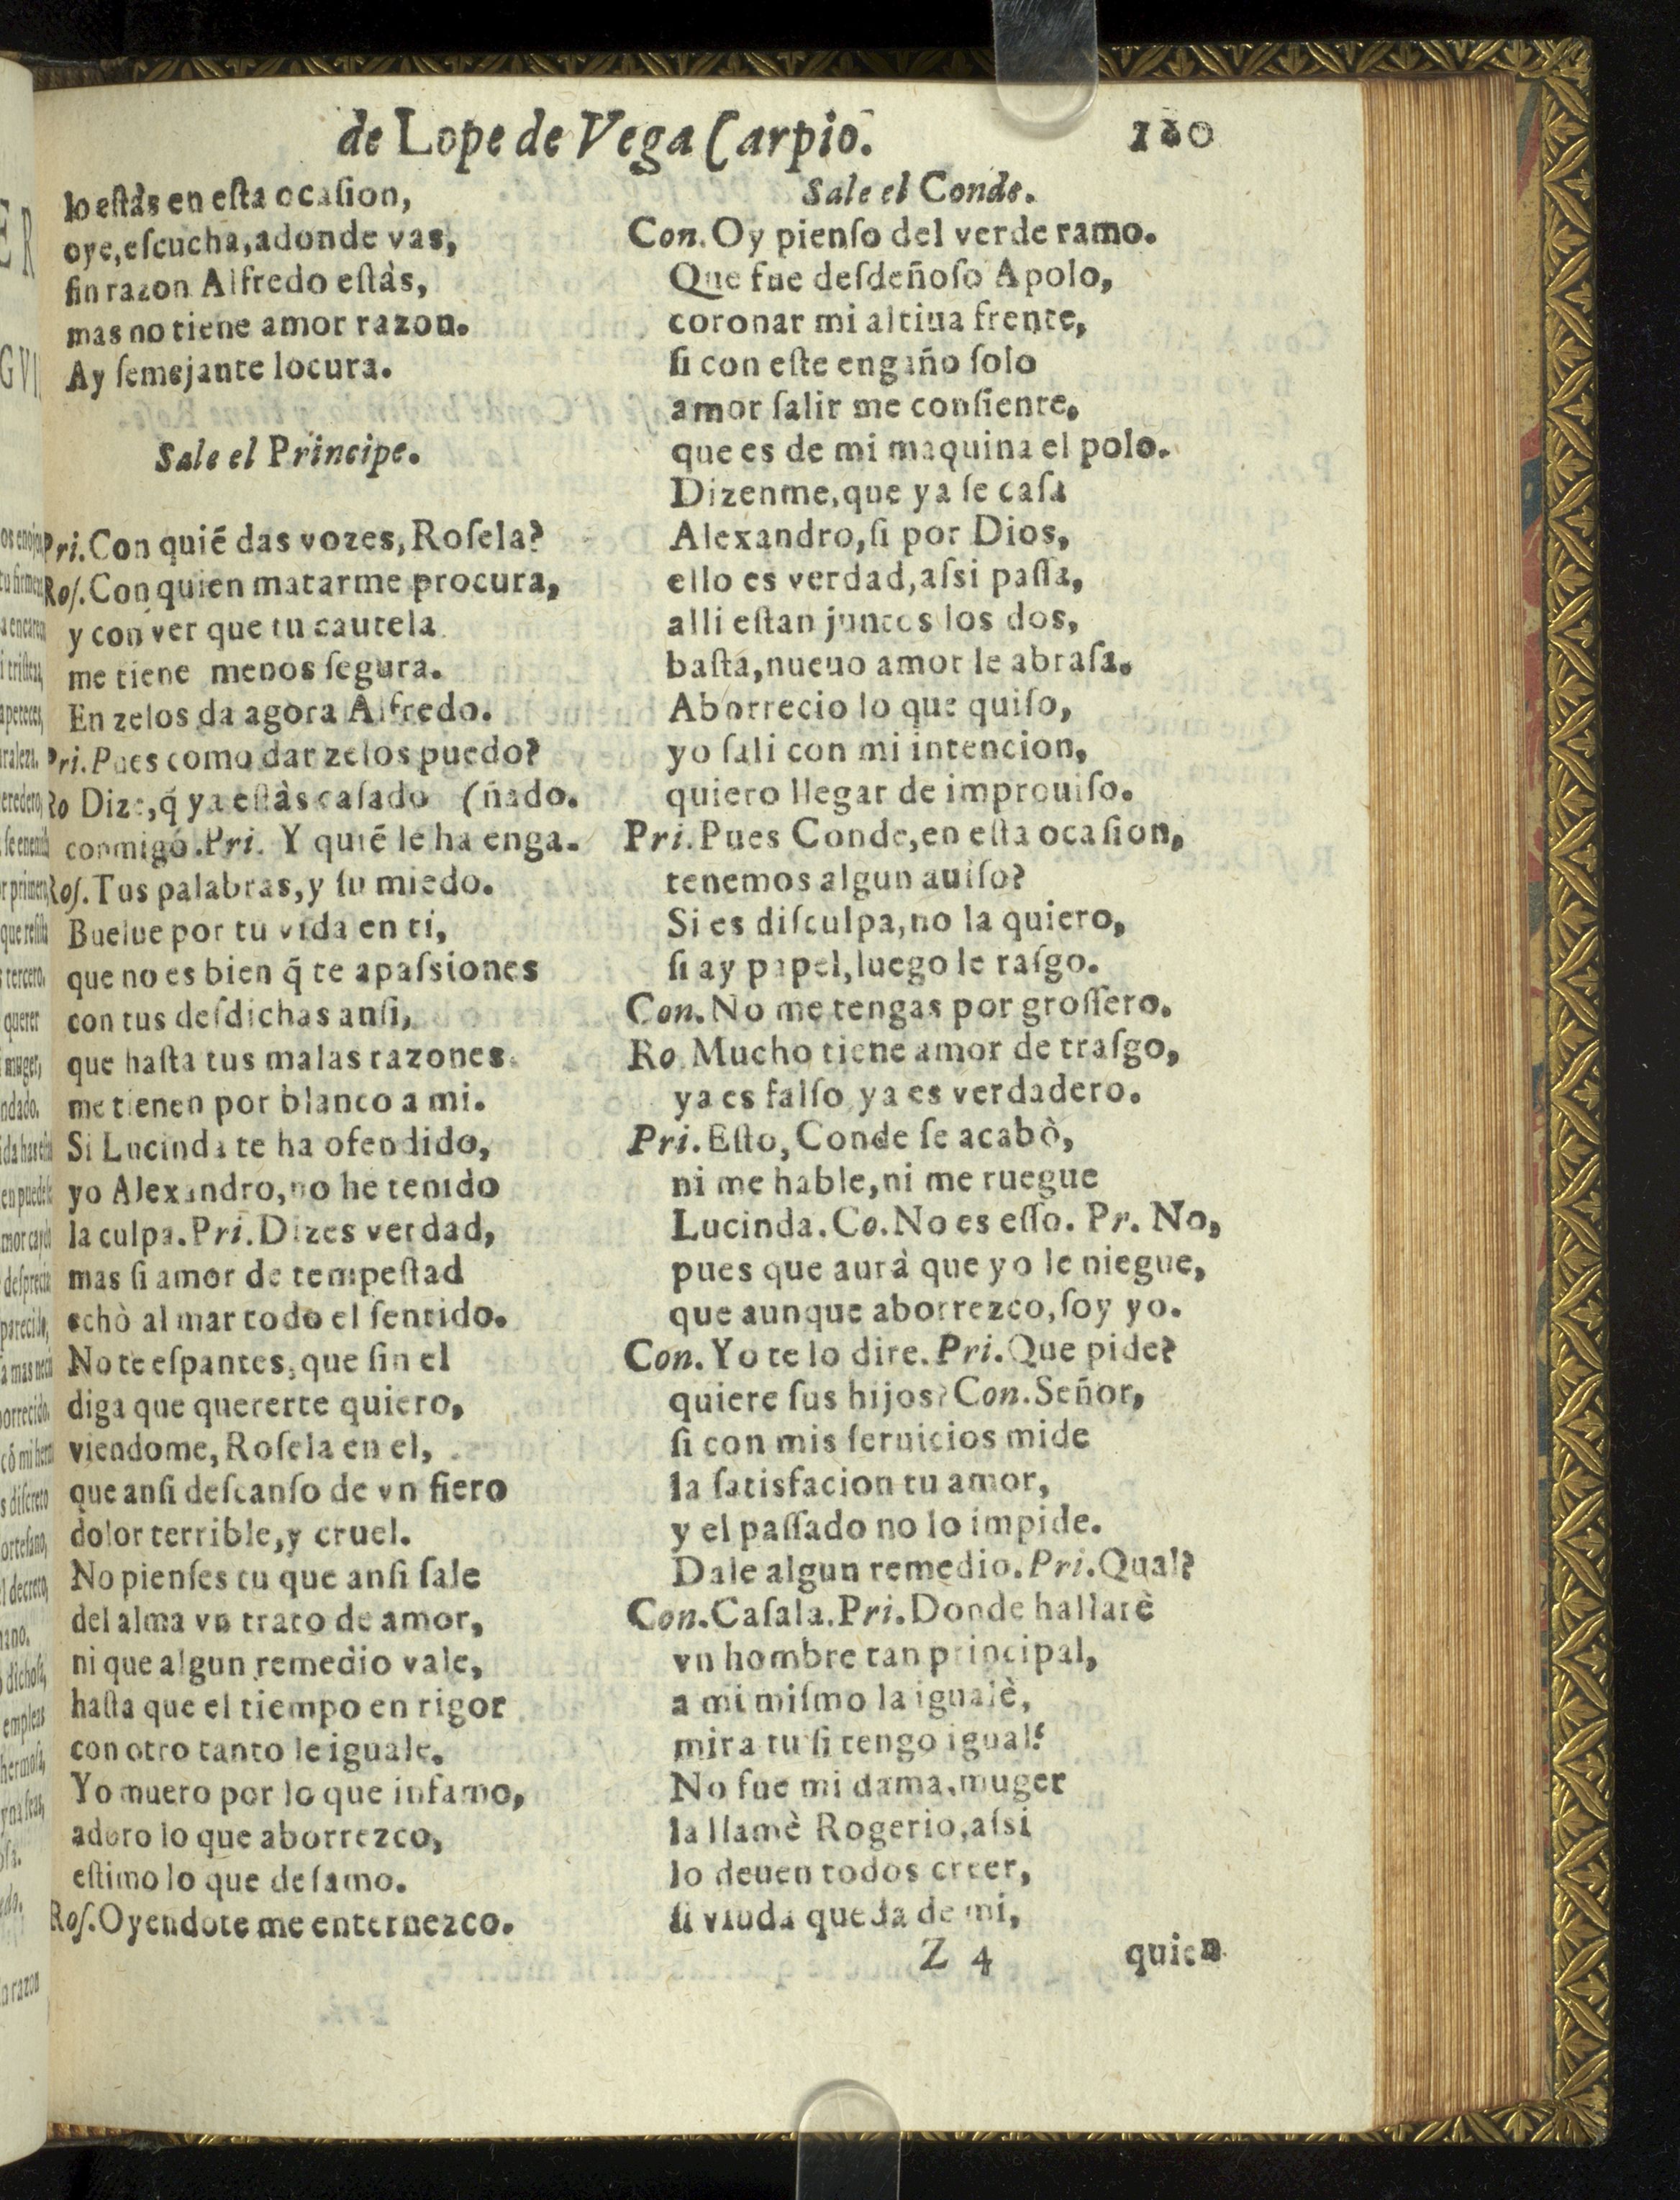 de Lope de Vega Carpio.
180
lo eſtàs en eſta ocaſion,
oye, eſcucha, adonde vas,
ſin razon Alfredo eſtàs,
mas no tiene amor razon.
Ay ſemejante locura.
Sale el Principe.
Pri. Con quiẽ das vozes, Roſela?
Roſ. Con quien matarme procura,
y con ver que tu cautela
me tiene menos ſegura.
En zelos da agora Alfredo.
Pri. Pues como dar zelos puedo?
Ro Dize, q̃ ya eſtàs caſado (ñado.
conmigo. Pri. Y quiẽ le ha enga-
Roſ. Tus palabras, y ſu miedo.
Buelue por tu vida en ti,
que no es bien q̃ te apaſsiones
con tus deſdichas anſi,
que haſta tus malas razones
me tienen por blanco a mi.
Si Lucinda te ha ofendido,
yo Alexandro, no he tenido
la culpa. Pri. Dizes verdad,
mas ſi amor de tempeſtad
echò al mar todo el ſentido.
No te eſpantes, que ſin el
diga que quererte quiero,
viendome, Roſela en el,
que anſi deſcanſo de vn fiero
dolor terrible, y cruel.
No pienſes tu que anſi ſale
del alma vn trato de amor,
ni que algun remedio vale,
haſta que el tiempo en rigor
con otro tanto le iguale.
Yo muero por lo que infamo,
adoro lo que aborrezco,
eſtimo lo que deſamo.
Roſ. Oyendote me enternezco.
Sale el Conde.
Con. Oy pienſo del verde ramo.
Que fue deſdeñoſo Apolo,
coronar mi altiua frente,
ſi con eſte engaño ſolo
amor ſalir me conſiente,
que es de mi maquina el polo.
Dizenme, que ya ſe caſa
Alexandro, ſi por Dios,
ello es verdad, aſsi paſſa,
alli eſtan juntos los dos,
baſta, nueuo amor le abraſa.
Aborrecio lo que quiſo,
yo ſali con mi intencion,
quiero llegar de improuiſo.
Pri. Pues Conde, en eſta ocaſion,
tenemos algun auiſo?
Si es diſculpa, no la quiero,
ſi ay papel, luego le raſgo.
Con. No me tengas por groſſero.
Ro. Mucho tiene amor de traſgo,
ya es falſo ya es verdadero.
Pri. Eſto, Conde ſe acabò,
ni me hable, ni me ruegue
Lucinda. Co. No es eſſo. Pr. No,
pues que aurà que yo le niegue,
que aunque aborrezco, ſoy yo.
Con. Yo te lo dire. Pri. Que pide?
quiere ſus hijos? Con. Señor,
ſi con mis ſeruicios mide
la ſatisfacion tu amor,
y el paſſado no lo impide.
Dale algun remedio. Pri. Qual?
Con. Caſala. Pri. Donde hallarè
vn hombre tan principal,
a mi miſmo la igualè,
mira tu ſi tengo igual?
No fue mi dama, muger
la llamè Rogerio, aſsi
lo deuen todos creer,
ſi viuda queda de mi,
Z 4
quien